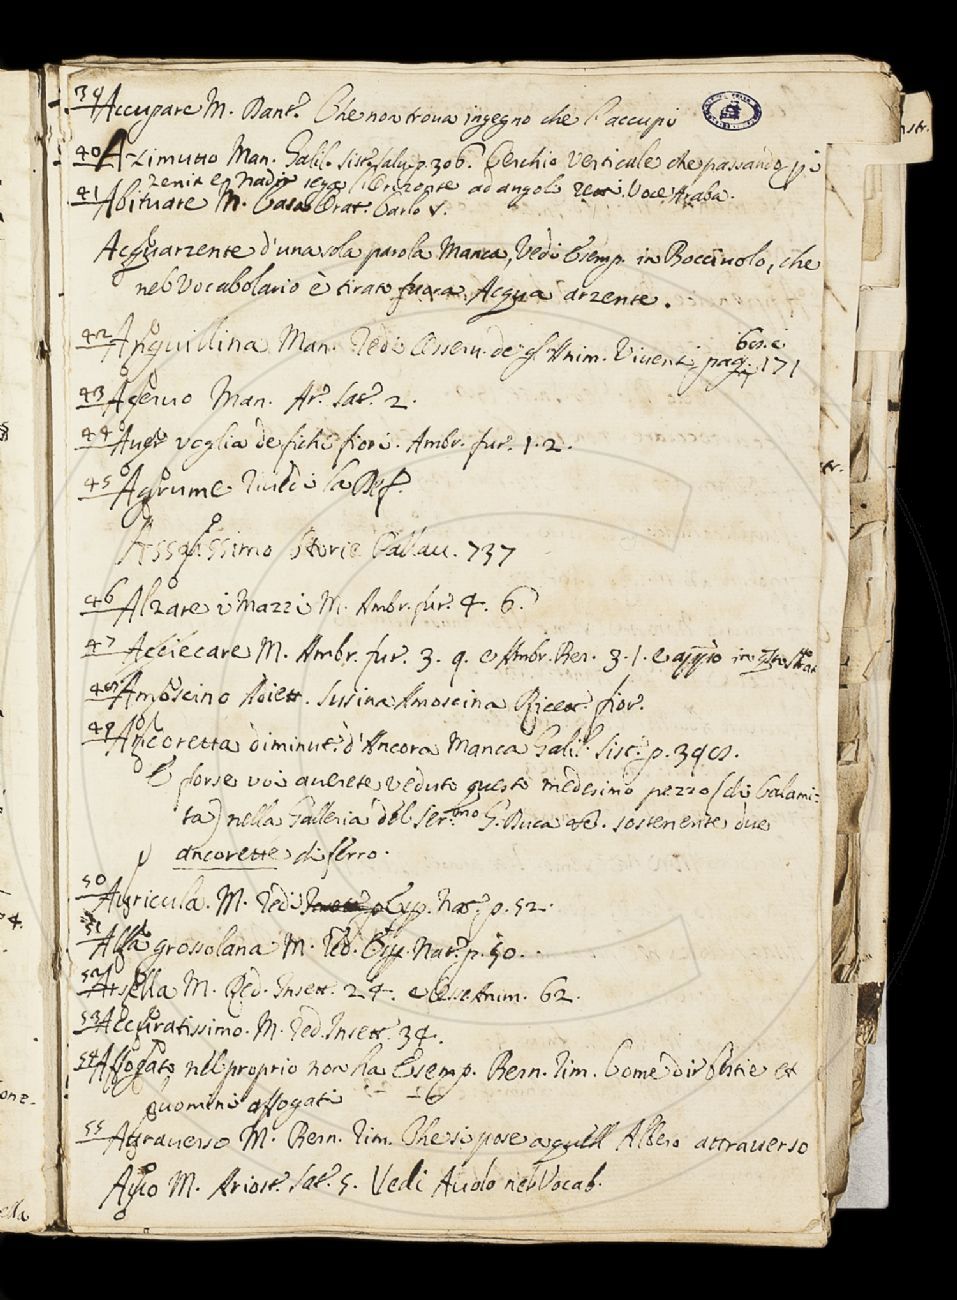 39 Accupare M. Dant. Che non trova ingegno che l'accupi
40 Azimutto Man. Galil. Sist. p. 306. Cerchio verticale che passando pi
zenit e Nadir sega l'Orizonte ad angoli Voce Araba.
41 Abituare M. Casa Orat. Carlo V.
Acquarzente d'una sola parola Manca, Vedi Esemp. in Bocciuolo, che
nel Vocabolario è tirato fuora Acqua arzente.
42 Anguillina Man. Redi Osserv. de gl'Anim. Viventi pag. 171
43 Man. Ar. Sat. 2.
44 Aver voglia de fichi fiori. Ambr. fur. 1. 2.
45 Agrume Rivedi la Def.
Storie 737
46 Alzare i Mazzi M. Ambr. fur. 4. 6.
47 Acciecare M. Ambr. fur. 3. 9. e Ambr. Ber. 3. 1. e in
48 Amoscino Susina Amoscina Ricett. fior.
49 Ancoretta diminut. d'Ancora Manca Galil. Sist. p.
E forse voi averete veduto questo medesimo pezzo (di Calami=
ta) nella Galleria del Ser.mo G. Duca sostenente due
ancorette di ferro.
50 Auricula. M. Redi Esp. Nat. p. 52.
51 Alla grossolana M. Red. Esp. Nat. p. 50.
52 Arsella M. Red. Insett. 24. e Oss. Anim. 62.
53 Accuratissimo. M. Red. Insett. 34.
54 Affogato nel proprio non ha Esemp. Bern. Rim. Come dir bestie et
huomini affogati
55 Attraverso M. Bern. Rim. Che si pose a quell Albero attraverso
M. Ariost. Sat. 5. Vedi Avolo nel Vocab.